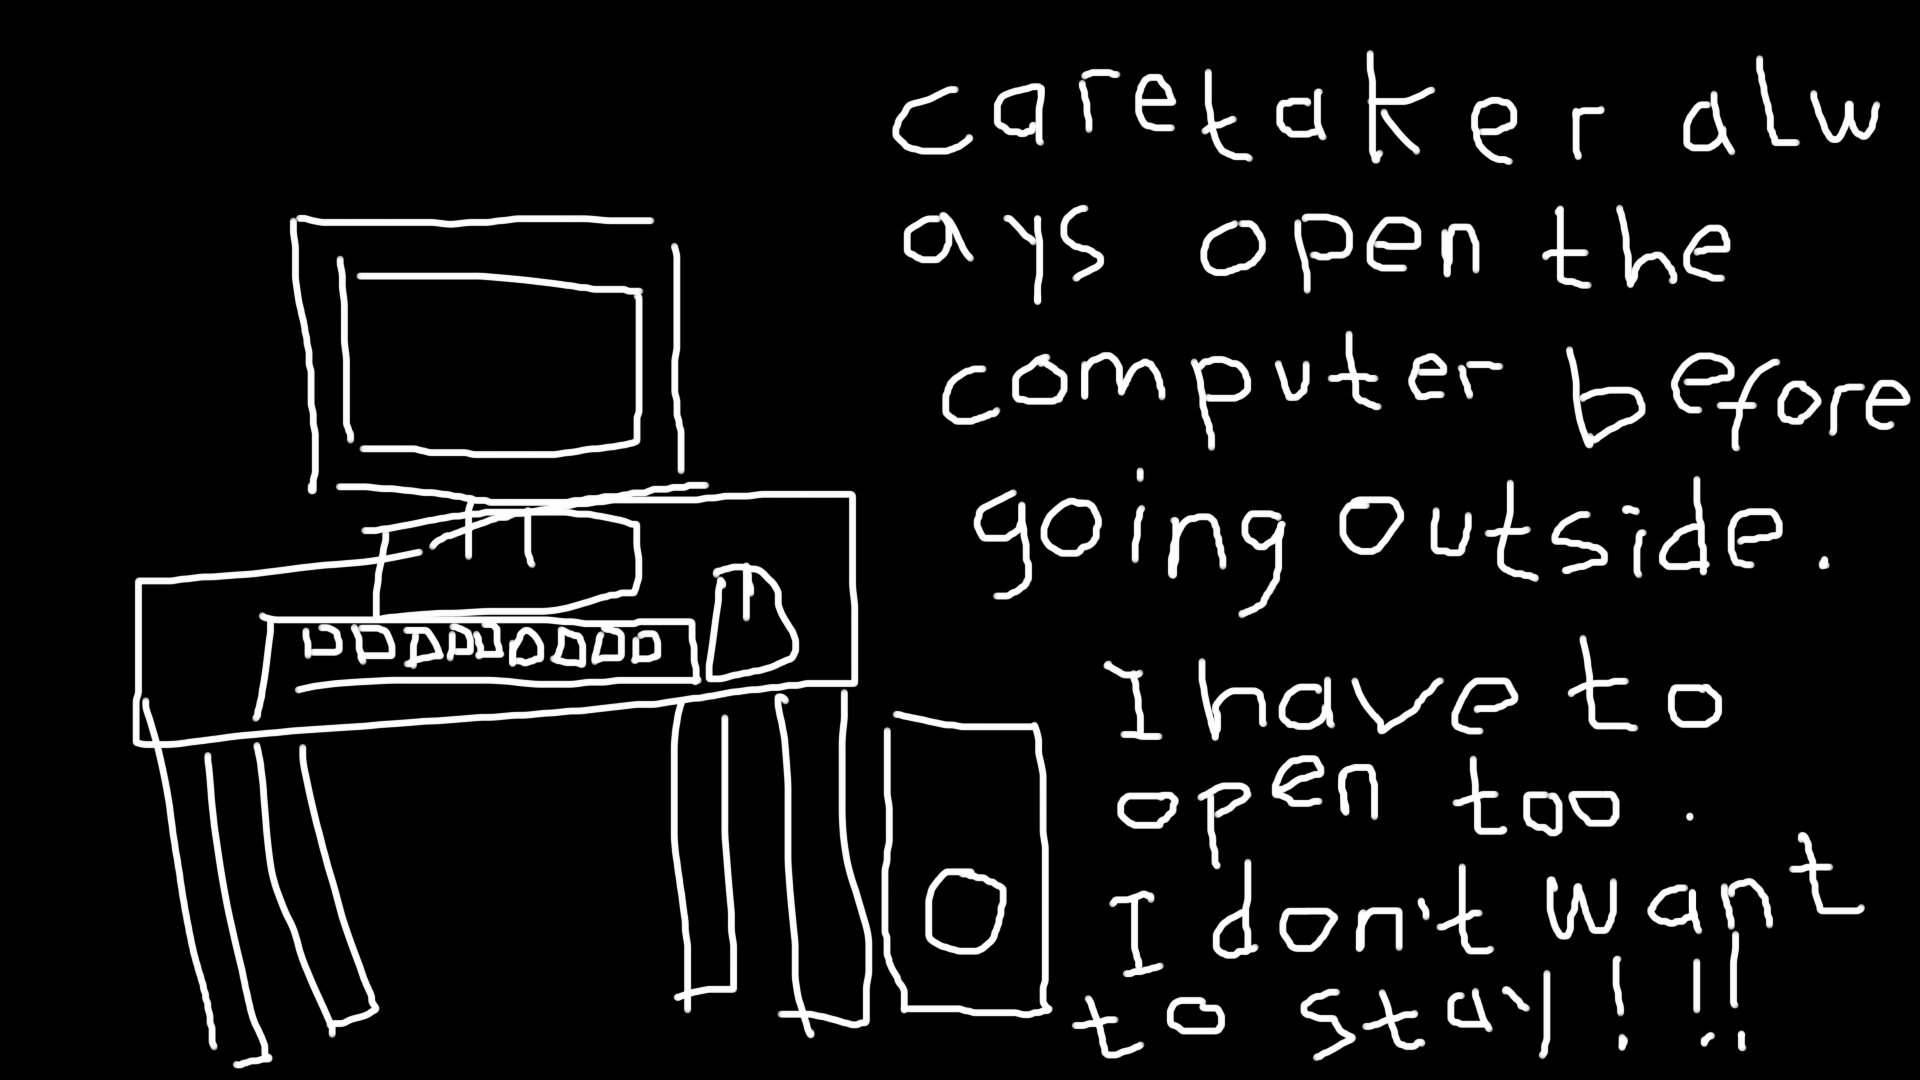 caretaker alw
ays open the
computer before
going outside.
I have to
open too.
I don't want
to stay!!!